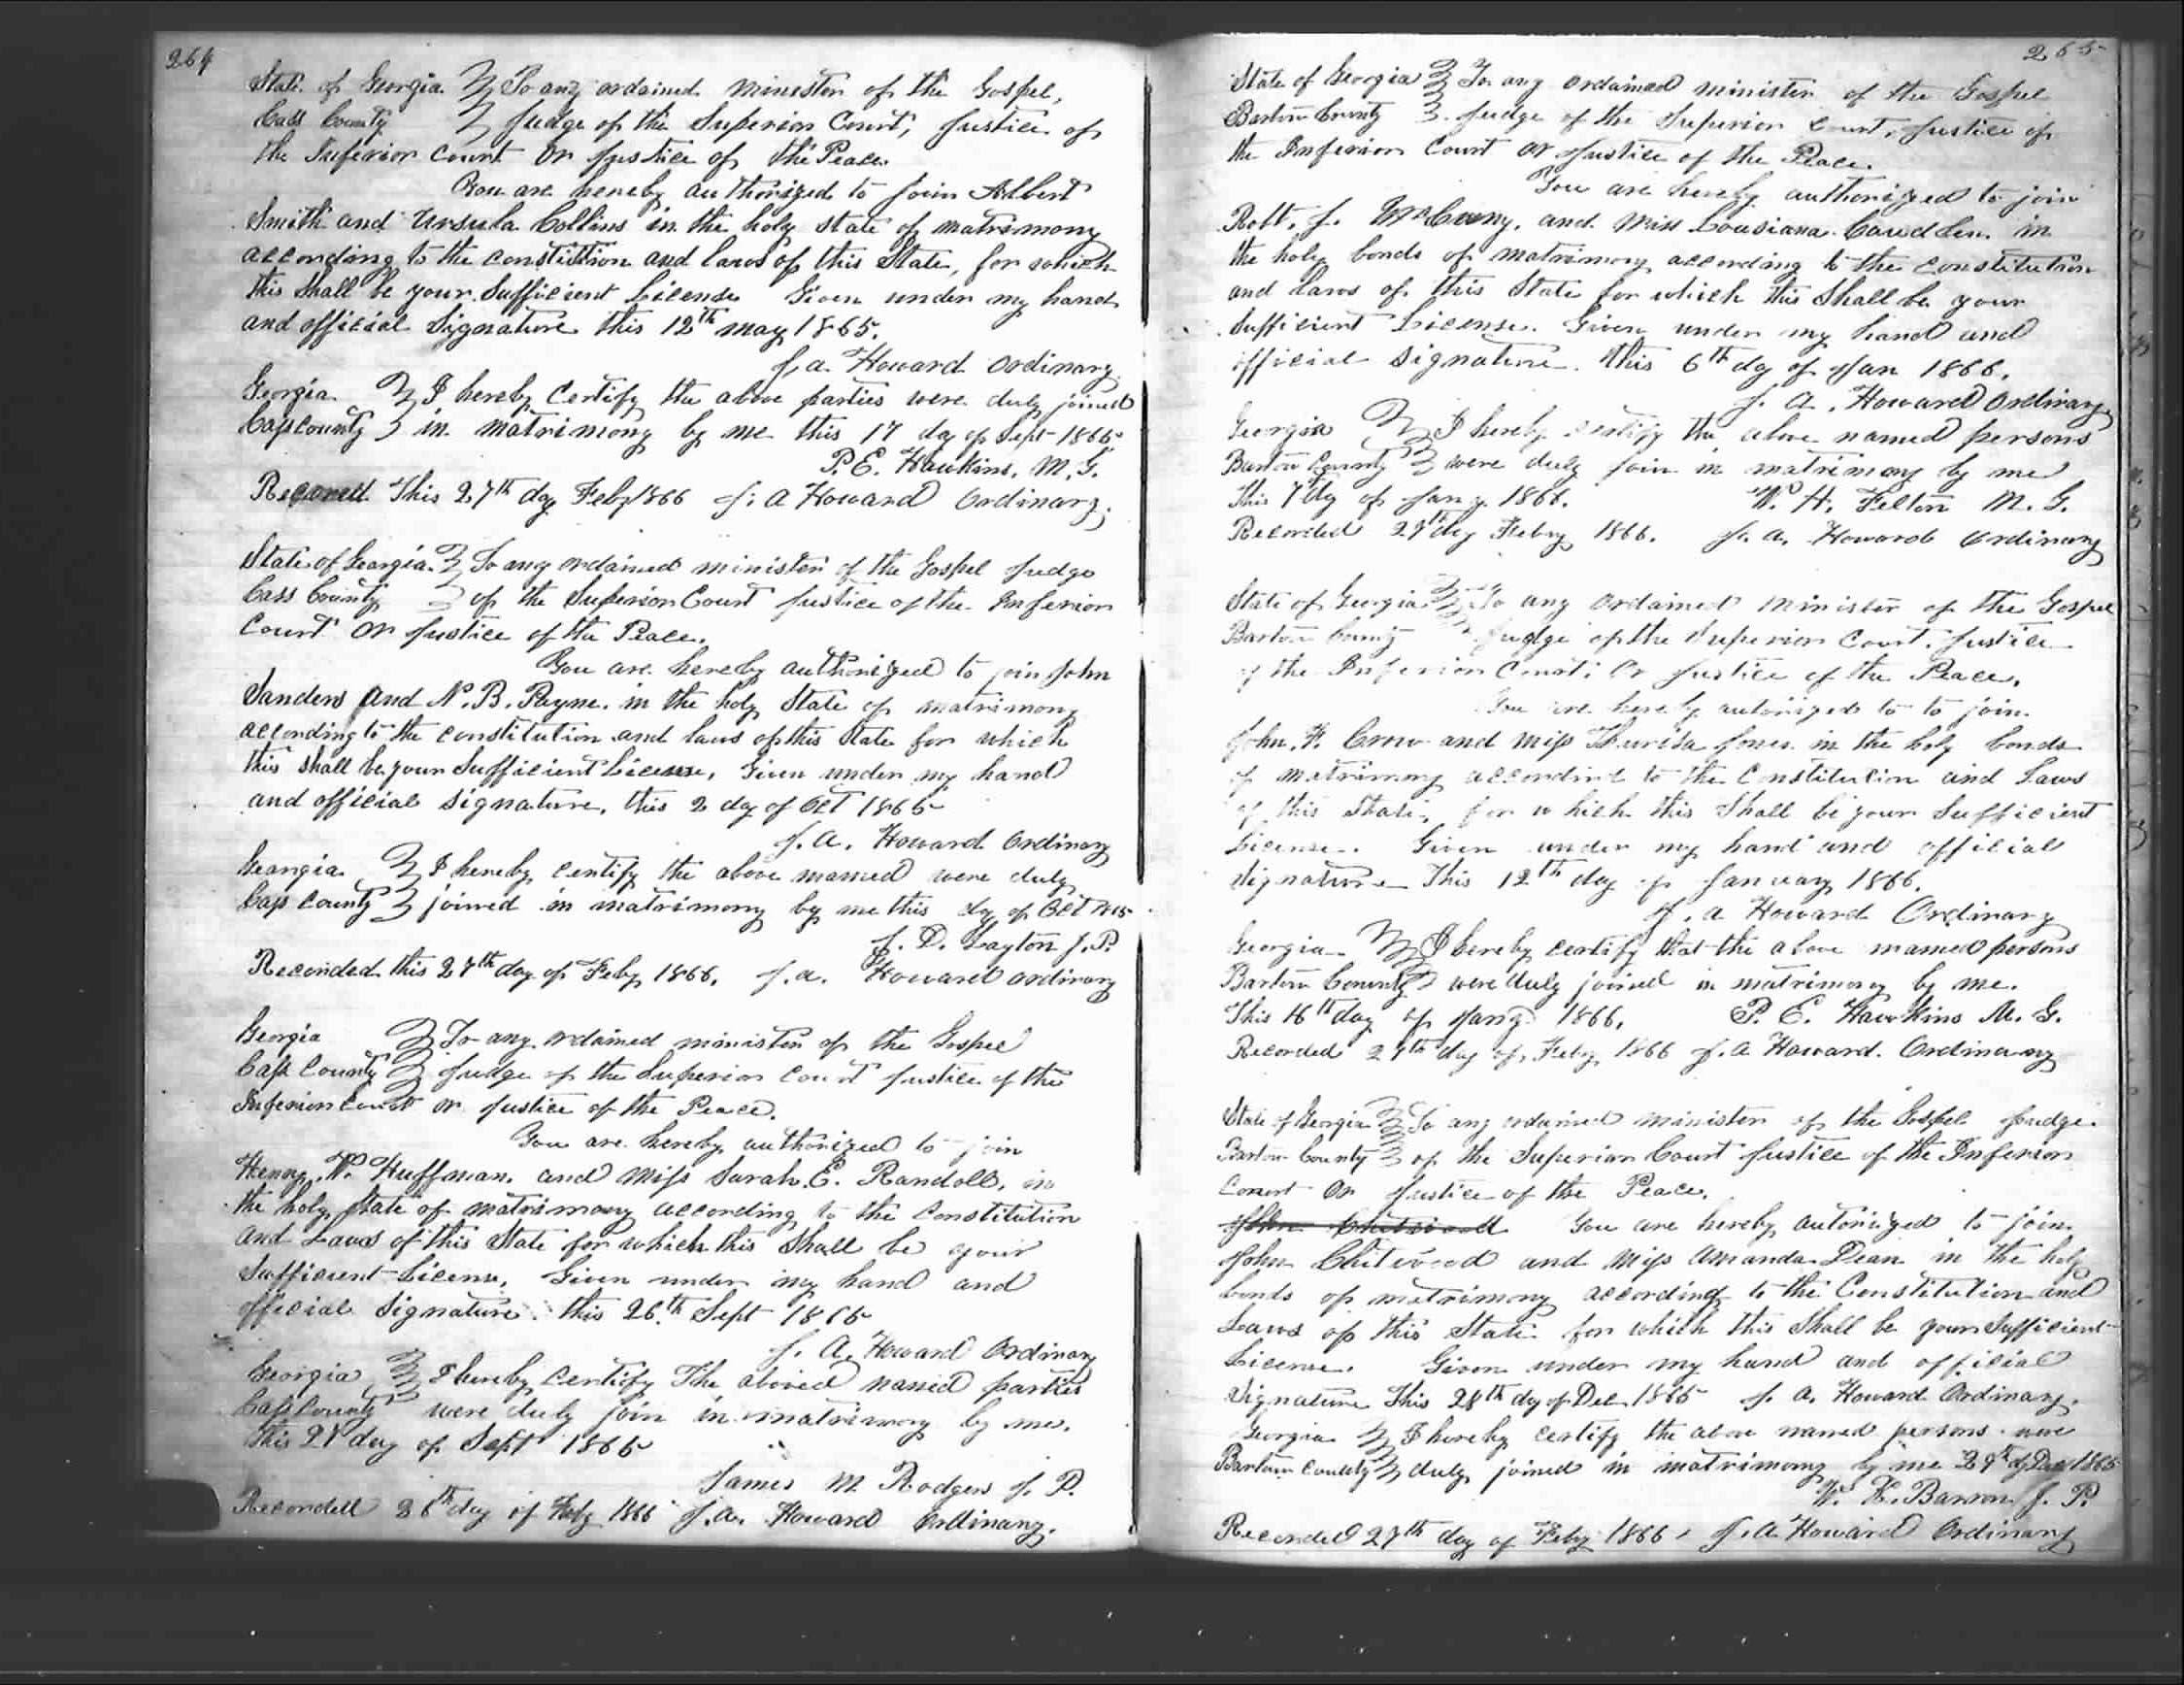 264
State of Georgia } To any ordained minister of the Gospel,
Cass County } Judge of the Superior Court, Justice of
the Inferior Court Or Justice of the Peace.
You are hereby authorized to join Albert
Smith and Ursula Collins in the holy state of matrimony
according to the constitution and laws of this State, for which
this shall be your Sufficient License Given under my hand
and official Signature this 12th may 1865.
J, a. Howard Ordinary.
Georgia } I hereby Certify the above parties were duly joined
Cass County } in matrimony by me this 17 day of Sept 1865
P. E. Hawkins, M. G.
Record This 27th day Feby 1866 J. A Howard Ordinary.
State of Georgia. } To any ordained minister of the Gospel Judge
Cass County } of the Superior Court Justice of the Inferior
Court Or Justice of the Peace.
You are hereby authorized to join John
Sanders and N. B. Payne. in the holy State of matrimony
according to the constitution and laws of this State for which
this shall be your Sufficient License, Given under my hand
and official signature, this 2 day of Oct 1865
J. A. Howard Ordinary
Georgia } I hereby certify the above named were duly
Cass County } joined in matrimony by me this day of Oct 1865
J. D. Layton J. P.
Recorded this 27th day of Feby 1866. J. a. Howard ordinary
Georgia } To any ordained minister of the Gospel
Cass County } Judge of the Superior Court Justice of the
Inferior Court or Justice of the Peace.
You are hereby authorized to join
Henry. W. Huffman. and Miss Sarah. E. Randoll, in
the holy state of matrimony according to the Constitution
and Laws of this State for which this Shall be your
Sufficient License, Given under my hand and
official Signature. this 26th Sept 1865
J. A. Howard Ordinary
Georgia } I hereby Certify The aboved named parties
Cass County } were duly join in matrimony by me.
this 27 day of Sept 1865
James M. Rodgers J. P.
Recordell 26th day of Feby 1866 J. A. Howard Ordinary.
265
State of Georgia } To any Ordained minister of the Gospel
Bartow County } Judge of the Superior Court, Justice of
the Inferior Court or Justice of the Peace.
You are hereby authorized to join
Robt. J. and Miss Lousiana in
the holy bonds of matrimony according to the constitution
and Laws of this State for which this Shall be your
Sufficient License. Given under my hand and
official signature. this 6th day of Jan 1866.
J. A. Howard Ordinary
Georgia } I hereby certify the above named persons
Bartow County } were duly join in matrimony by me
This 7 day of Jany. 1866. W. H. Felton M. G.
Recorded 27th day Feby 1866. J. A. Howard Ordinary
State of Georgia } To any Ordained minister of the Gospel
Bartow County } Judge of the Superior Court. Justice
of the Inferior Court; Or Justice of the Peace.
You are hereby autorized to to join.
John. F. Crow and Miss Jones in the holy bonds
of matrimony according to the Constitution and Laws
of this State, for which this Shall be your Sufficient
License. Given under my hand and official
signature This 12th day of January 1866.
J. A Howard Ordinary
Georgia } I hereby certify that the above named persons
Bartow County } were duly joined in matrimony by me.
This 16th day of Jany 1866. P. E. Hawkins M. G.
Recorded 27th day of Feby 1866 J. A Howard. Ordinary
State of Georgia } To any ordained minister of the Gospel Judge
Bartow County } of the Superior Court Justice of the Inferior
Court Or Justice of the Peace.
John Chitwood You are hereby autorized to join
John Chitwood and Miss Amanda Dean in the holy
bonds of matrimony according to the Constitution and
Laws of this State for which this Shall be your Sufficient
License. Given under my hand and official
signature This 28th day of Dec 1865 J. A. Howard Ordinary.
Georgia } I hereby certify the above named persons were
Bartow County } duly joined in matrimony by me 29th of Dec 1865
W. H. Barron J. P.
Recorded 27th day of Feby 1866. J. A Howard Ordinary